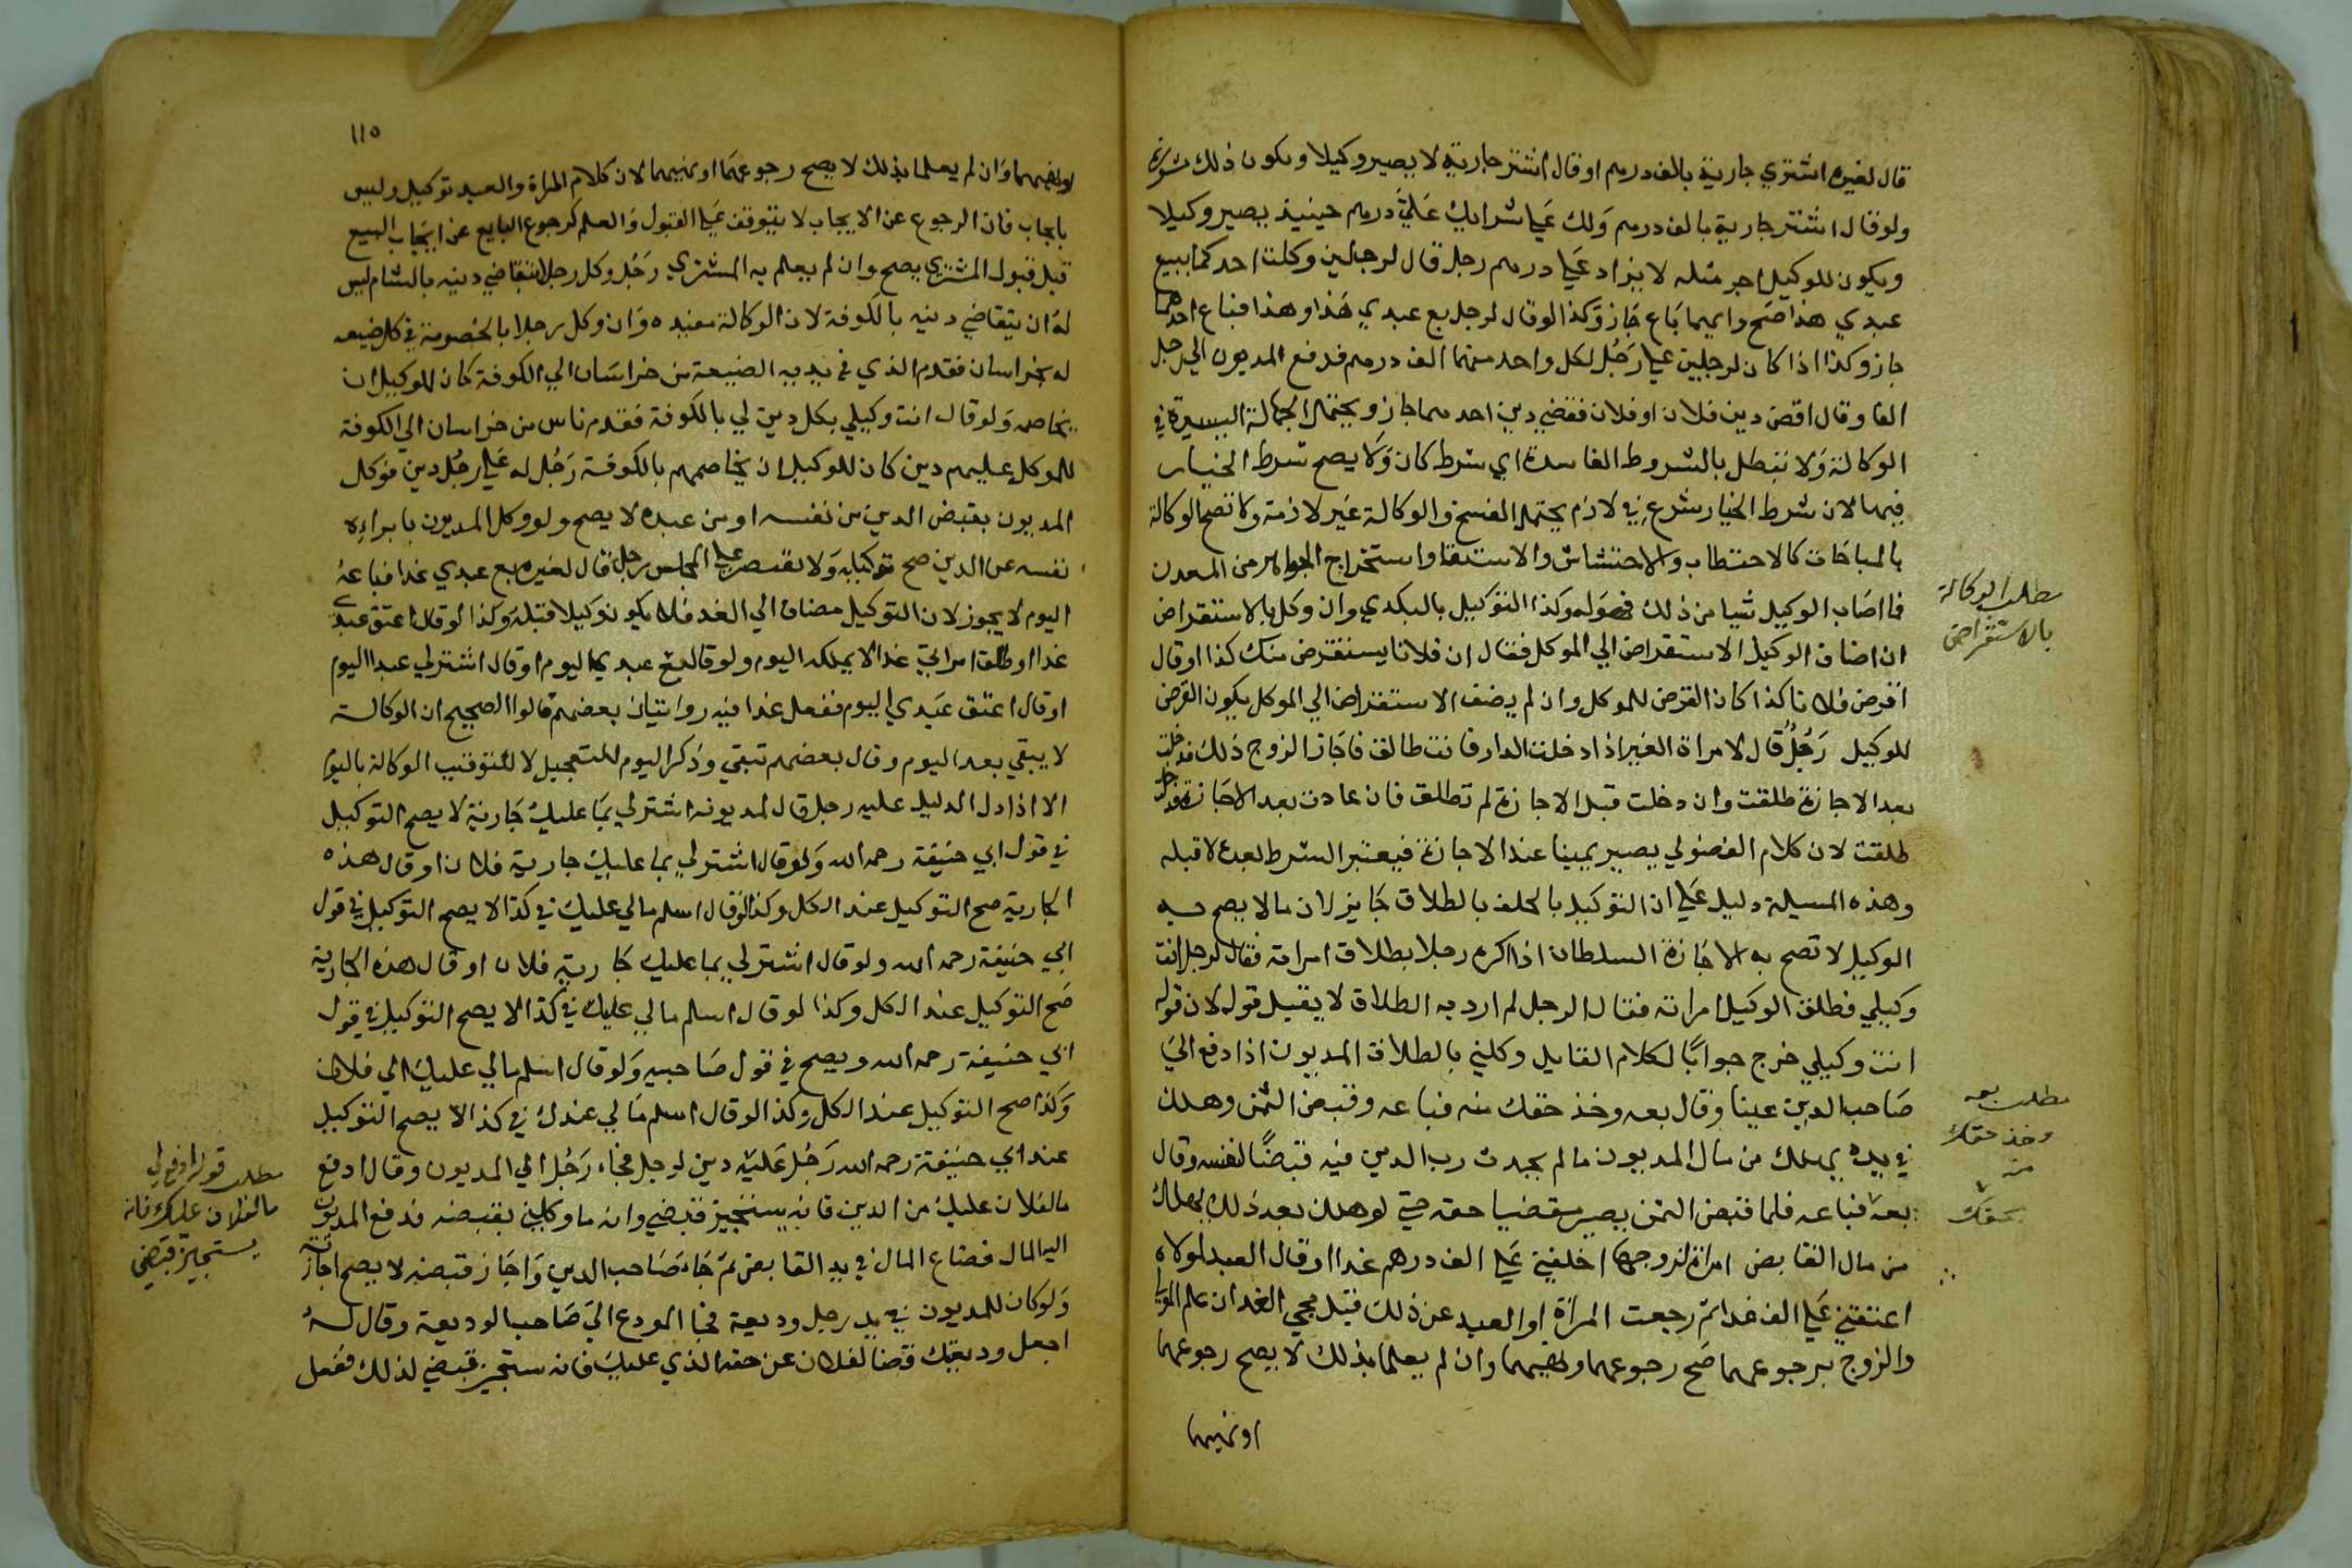 قال لغيره اشتري جارية بالف درهم او قال اشتر جارية لا يصير وكيلا ويكون ذلك مشورة
ولو قال اشتر جارية بالف درهم ولك علي شرايك علي درهم حينيذ يصير وكيلا
ويكون للوكيل اجر مثله لا يزاد علي درهم رجل قال لرجلين وكلت احدكما ببيع
عبدي هذا صح وايهما باع جاز وكذا لو قال لرجل بع عبدي هذا او هذا فباع احدهما
جاز وكذا اذا كان لرجلين علي رجل لكل واحد منهما الف درهم فدفع المديون الي رجل
الفا وقال اقض دين فلان او فلان فقضي دين احدهما جاز ويحتمل الجهالة اليسيرة في
الوكالة ولا تبطل بالشروط الفاسدة اي شرط كان ولا يصح شرط الخيار
فيها لان شرط الخيار شرع في لازم يحتمل الفسخ والوكالة غير لازمة ولا تصح الوكالة
بالمباحات كالاحتطاب والاحتشاش والاستقا واستخراج الجواهر من المعدن
فما اصاب الوكيل شيا من ذلك فهو له وكذا التوكيل بالتكدي وان وكل بالاستقراض
ان اضاف الوكيل الاستقراض الي الموكل فقال ان فلانا يستقرض منك كذا او قال
اقرض فلانا كذا كان القرض للموكل وان لم يضف الاستقراض الي الموكل يكون القرض
للوكيل رجل قال لامراة الغير اذا دخلت الدار فانت طالق فاجاز الزوج ذلك فدخلت
بعد الاجازة طلقت وان دخلت قبل الاجازة لم تطلق فان عادت بعد الاجازة فدخلت
طلقت لان كلام الفضولي يصير يمينا عند الاجازة فيعتبر الشرط بعده لا قبله
وهذه المسيلة دليل علي ان التوكيل بالحلف بالطلاق جايز لان ما لا يصح به
الوكيل لا تصح به الاجازة السلطان اذا اكره رجلا بطلاق امراته فقال لرجل انت
وكيلي فطلق الوكيل امراته فقال الرجل لم ارد به الطلاق لا يقبل قوله لان قوله
انت وكيلي خرج جوابا لكلام القايل وكلني بالطلاق المديون اذا دفع الي
صاحب الدين عينا وقال بعه وخذ حقك منه فباعه وقبض الثمن وهلك
في يده يهلك من مال المديون ما لم يحدث رب الدين فيه قبضا لنفسه وقال
بعه فباعه فلما قبض الثمن يصير مقتضيا حقه حتي لو هلك بعد ذلك يهلك
من مال القابض امراة لزوجها اخلعني علي الف درهم غدا او قال العبد لمولاه
اعتقني علي الف غدا ثم رجعت المراة او العبد عن ذلك قبل مجي الغد ان علم المولي
والزوج برجوعهما صح رجوعهما ونهيهما وان لم يعلما بذلك لا يصح رجوعهما
او نهيهما
مطلب الوكالة
بالاستقراض
مطلب بعه
وخذ حقك
منه
بحقك
١١٥
او نهيهما وان لم يعلما بذلك لا يصح رجوعهما او نهيهما لان كلام المراة والعبد توكيل وليس
بايجاب فان الرجوع عن الايجاب لا يتوقف علي القبول والعلم كرجوع البايع عن ايجاب البيع
قبل قبول المشتري يصح وان لم يعلم به المشتري رجل وكل رجلا بتقاضي دينه بالشام ليس
له ان يتقاضي دينه بالكوفة لان الوكالة مقيدة وان وكل رجلا بالخصومة في كل ضيعه
له بخراسان فقدم الذي في يديه الضيعة من خراسان الي الكوفة كان للوكيل ان
يخاصمه ولو قال انت وكيلي بكل دين لي بالكوفة فقدم ناس من خراسان الي الكوفة
للموكل عليهم دين كان للوكيل ان يخاصمهم بالكوفة رجل له علي رجل دين فوكل
المديون بقبض الدين من نفسه او من عبده لا يصح ولو وكل المديون بابراءه
نفسه عن الدين صح توكيله ولا يقتصر علي المجلس رجل قال لغيره بع عبدي غدا فباعه
اليوم لا يجوز لان التوكيل مضاف الي الغد فلا يكون وكيلا قبله وكذا لو قال اعتق عبدي
غدا او طلق امراتي غدا لا يملكه اليوم ولو قال بع عبدي اليوم او قال اشتر لي عبدا اليوم
او قال اعتق عبدي اليوم ففعل غدا فيه روايتان بعضهم قالوا الصحيح ان الوكالة
لا يبقي بعد اليوم وقال بعضهم تبقي وذكر اليوم للتعجيل لا لتوقيت الوكالة باليوم
الا اذا دل الدليل عليه رجل قال لمديونه اشتر لي بما عليك جارية لا يصح التوكيل
في قول ابي حنيفة رحمه الله ولو قال اشتر لي بما عليك جارية فلان او قال هذه
الجارية صح التوكيل عند الكل وكذا لو قال اسلم مالي عليك في كذا لا يصح التوكيل في قول
ابي حنيفة رحمه الله ولو قال اشتر لي بما عليك جارية فلان او قال هذه الجارية
صح التوكيل عند الكل وكذا لو قال اسلم مالي عليك في كذا لا يصح التوكيل في قول
ابي حنيفة رحمه الله ويصح في قول صاحبيه ولو قال اسلم مالي عليك الي فلان
وكذا صح التوكيل عند الكل وكذا لو قال اسلم مالي عندك في كذا لا يصح التوكيل
عند ابي حنيفة رحمه الله رجل عليه دين لرجل فجاء رجل الي المديون وقال ادفع
ما لفلان عليك من الدين فانه يستجيز قبضي وانه ما وكلني بقبضه فدفع المديون
اليه المال فضاع المال في يد القابض ثم جاء صاحب الدين واجاز قبضه لا يصح اجازته
ولو كان للمديون في يد رجل وديعة فجا المودع الي صاحب الوديعة وقال له
اجعل وديعتك قضا لفلان عن حقه الذي عليك فانه يستجيز قبضي لذلك ففعل
مطلب قوله ادفع لي
ما لفلان عليك فانه
يستجيز قبضي